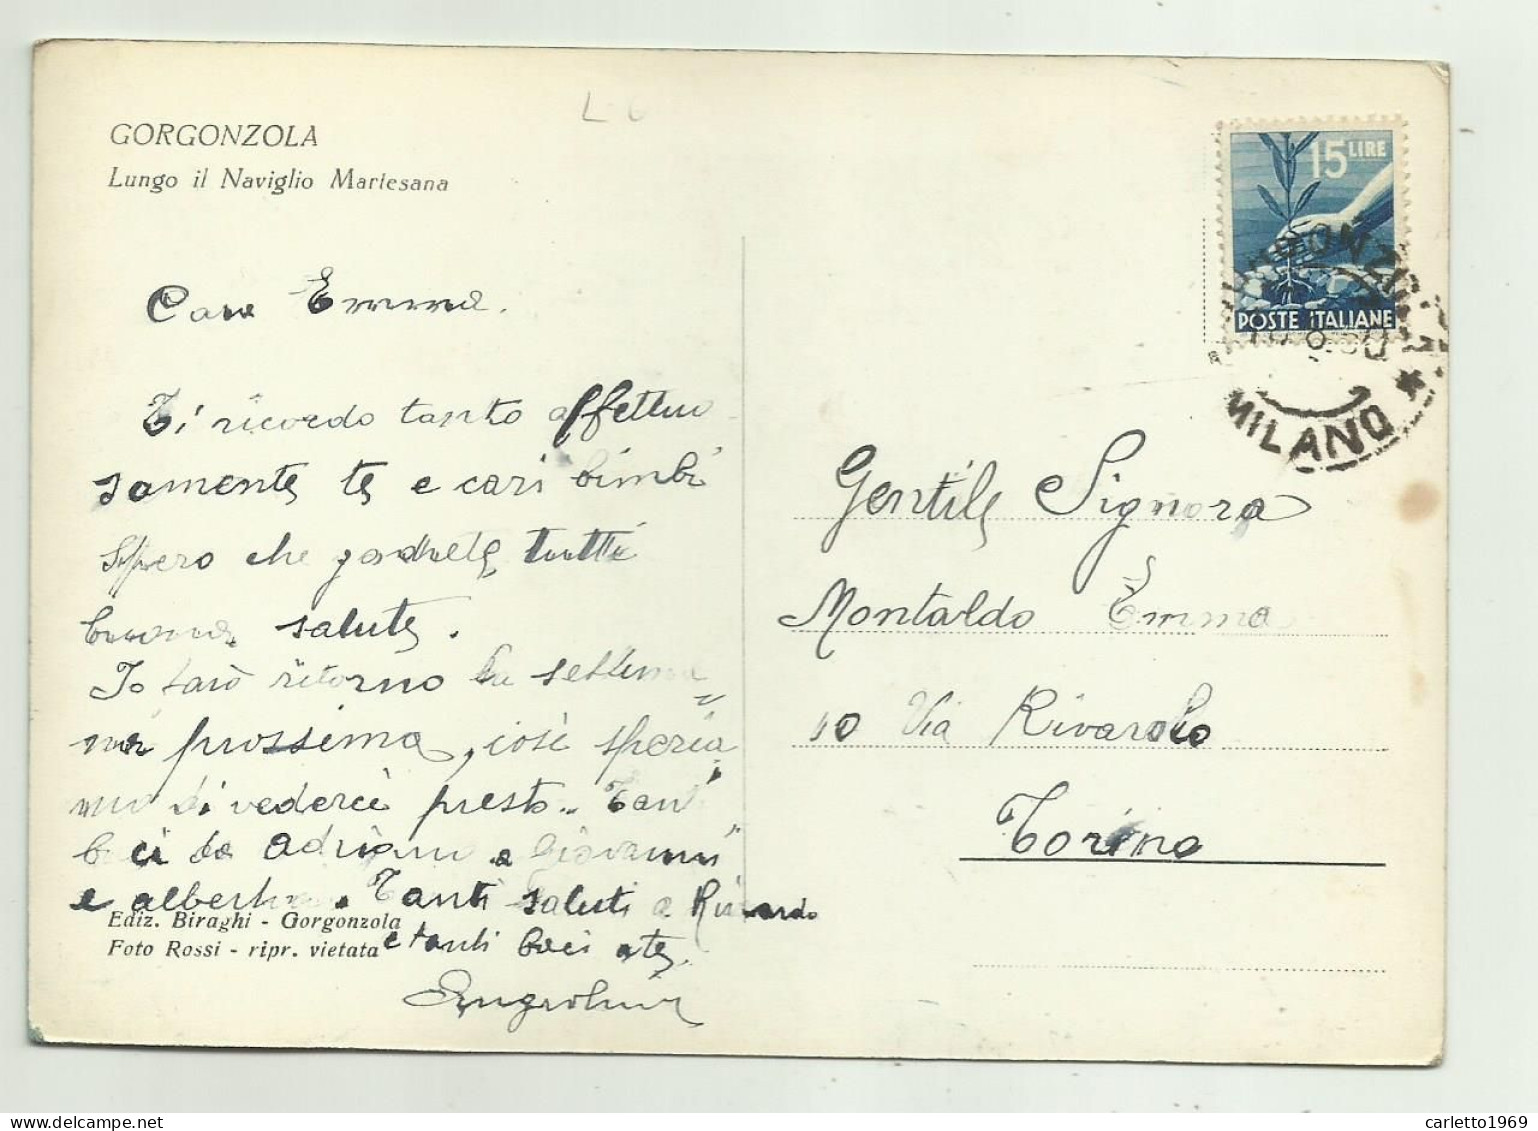 GORGONZOLA
Lungo il Naviglio Martesana
Cara Emma.
Ti ricordo tanto affettuo
samente te e cari bimbi
Spero che godrete tutti
buona salute.
Io farò ritorno la settima
na prossima, così speria
mo di vederci presto. Tanti
baci da Adriano e Giovanni
e Albertino. Tanti saluti a Riccardo
e tanti baci a te.
Ediz. Biraghi - Gorgonzola
Foto Rossi - ripr. vietata
15 LIRE
POSTE ITALIANE
MILANO
Gentile Signora
Montaldo Emma
10 Via Rivarolo
Torino
carletto1969